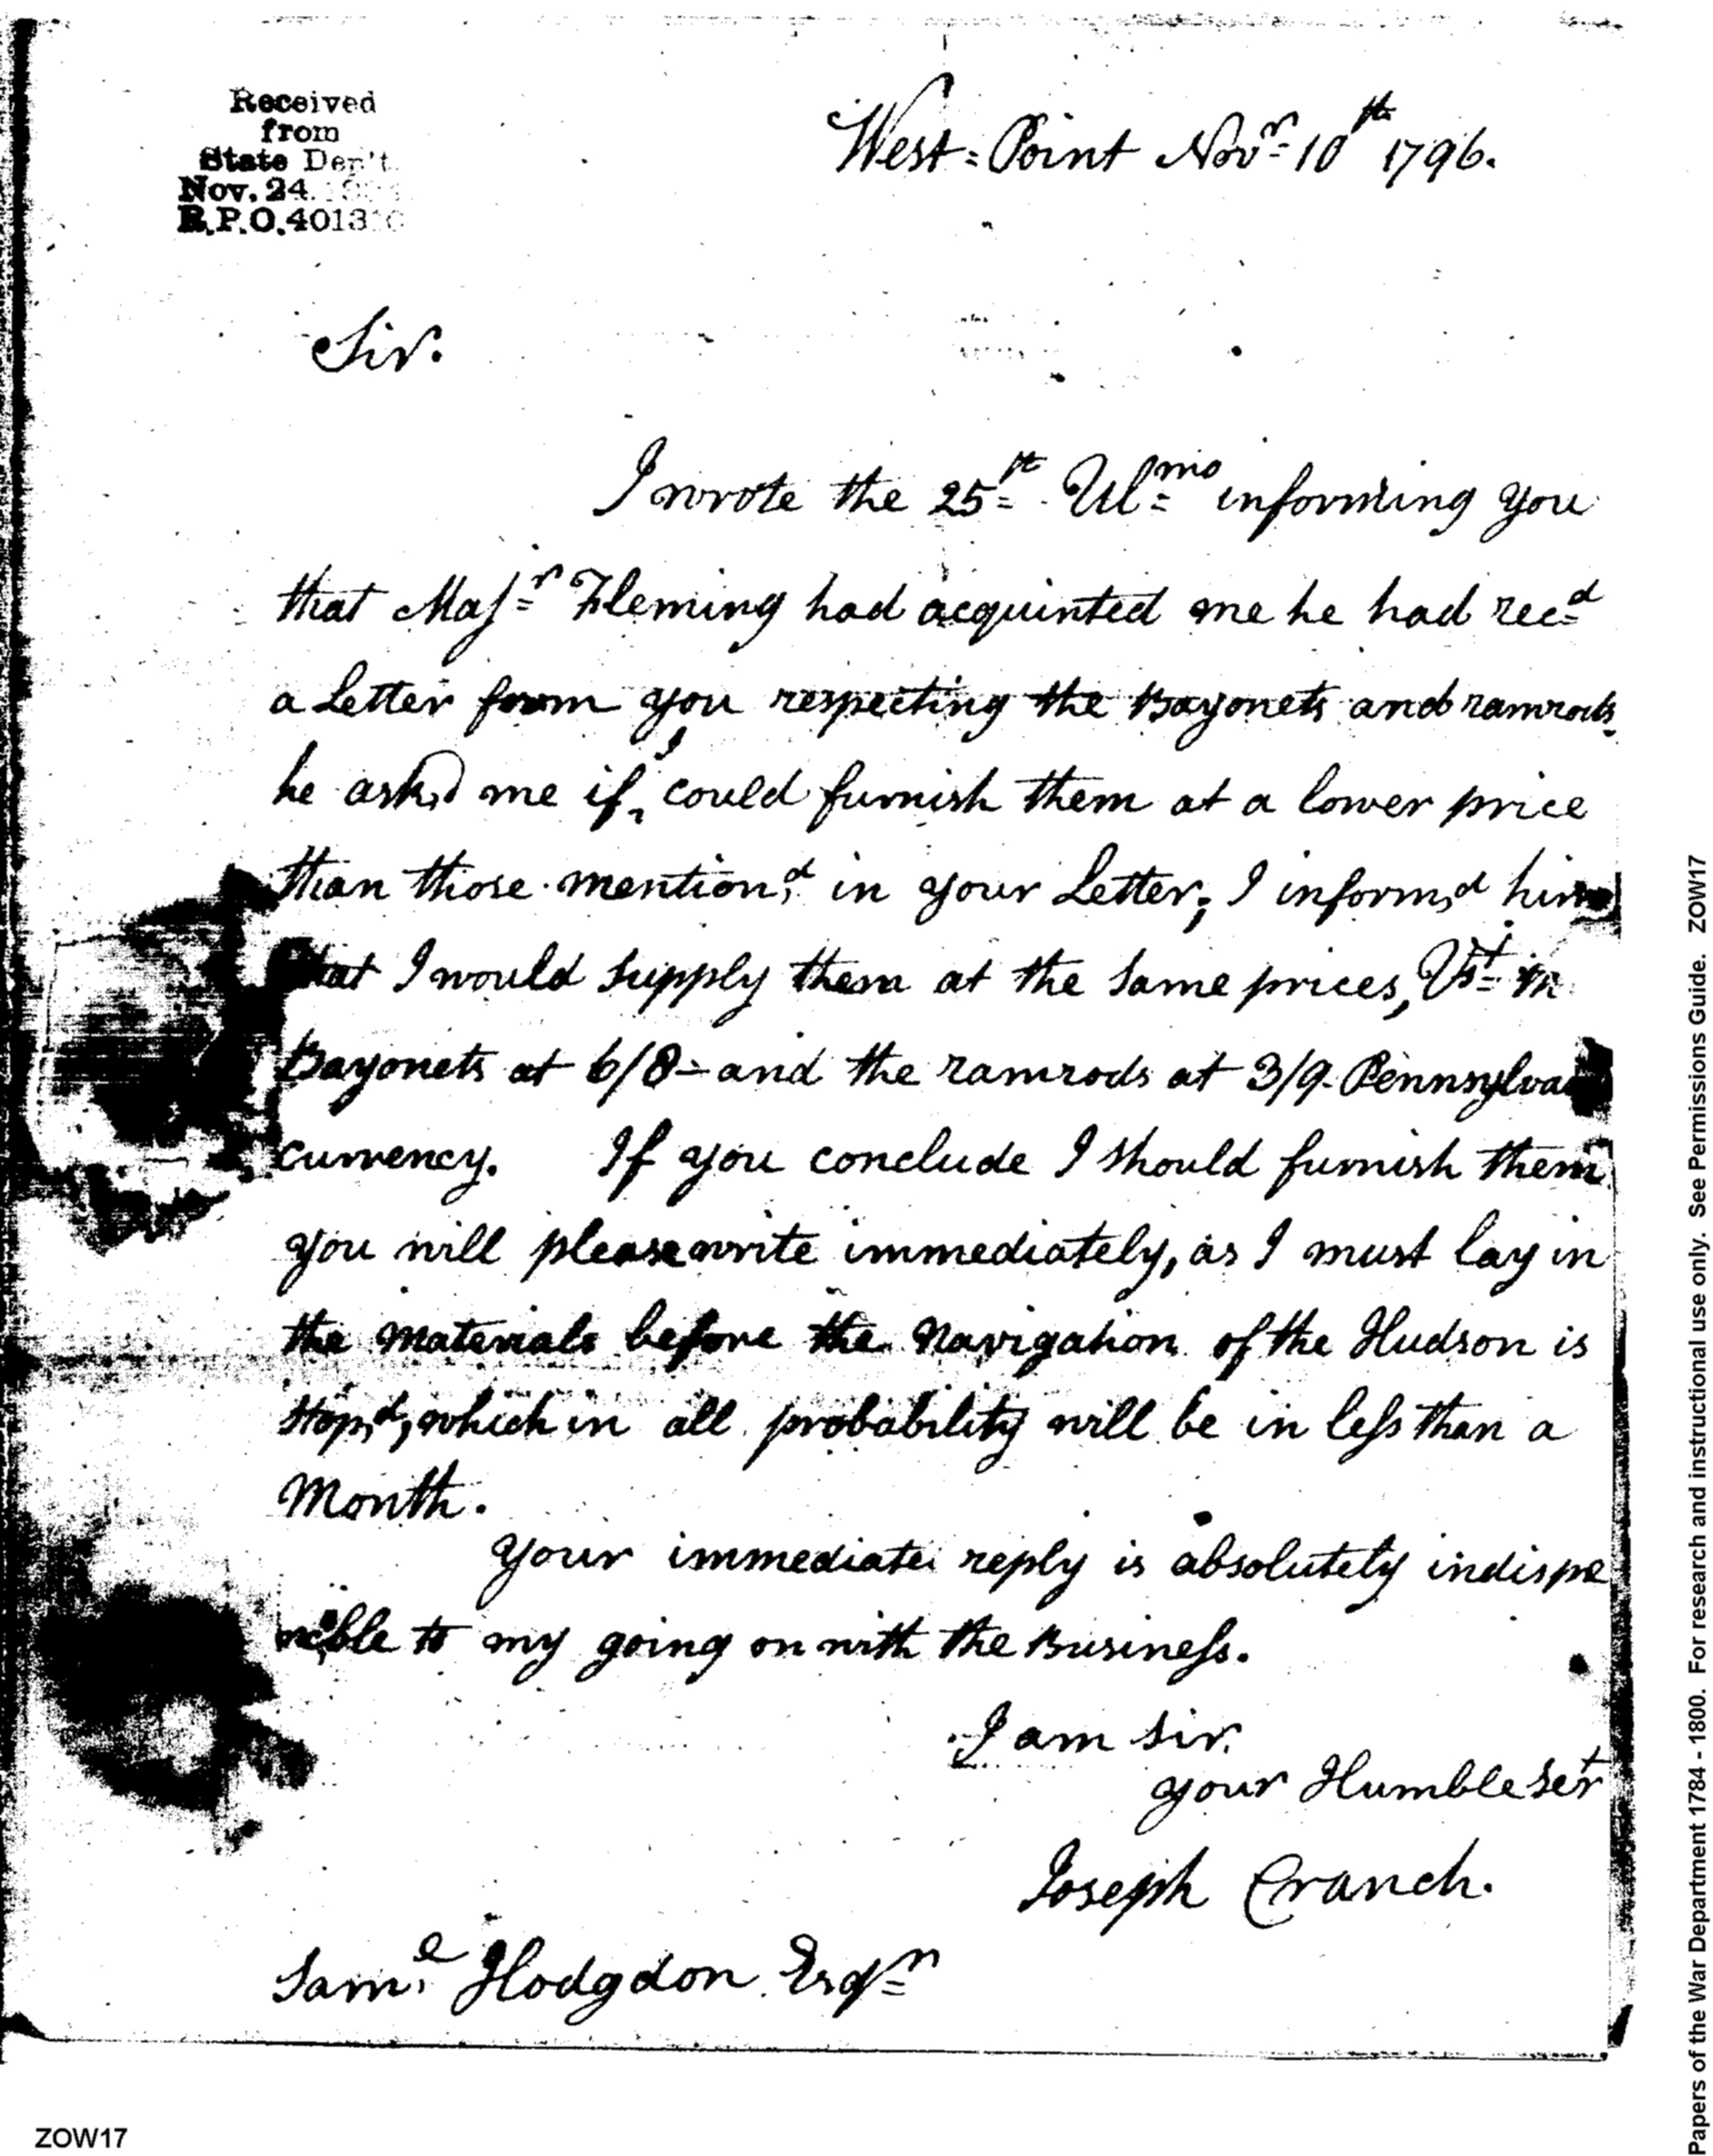 Received
from
State Dep't.
Nov. 24.
R.P.O. 4013
West=Point Novr 10th 1796.
Sir.
I wrote the 25th Ulmo informing you
that Majr Fleming had acquinted me he had recd
a Letter from you respecting the Bayonets and ramrods
he askd me if I could furnish them at a lower price
than those mention,d in your Letter; I inform,d him
that I would supply them at the same prices,
Bayonets at 6/8 - and the ramrods at 3/9 Pennsylvan
currency. If you conclude I should furnish them
you will please write immediately, as I must lay in
the Materials before the Navigation of the Hudson is
stop,d, which in all probability will be in less than a
Month.
Your immediate reply is absolutely indispe
nsible to my going on with the Business.
I am Sir.
your Humble Sert
Joseph Cranch.
Saml Hodgdon Esqr
ZOW17
Papers of the War Department 1784 - 1800. For research and instructional use only. See Permissions Guide. ZOW17